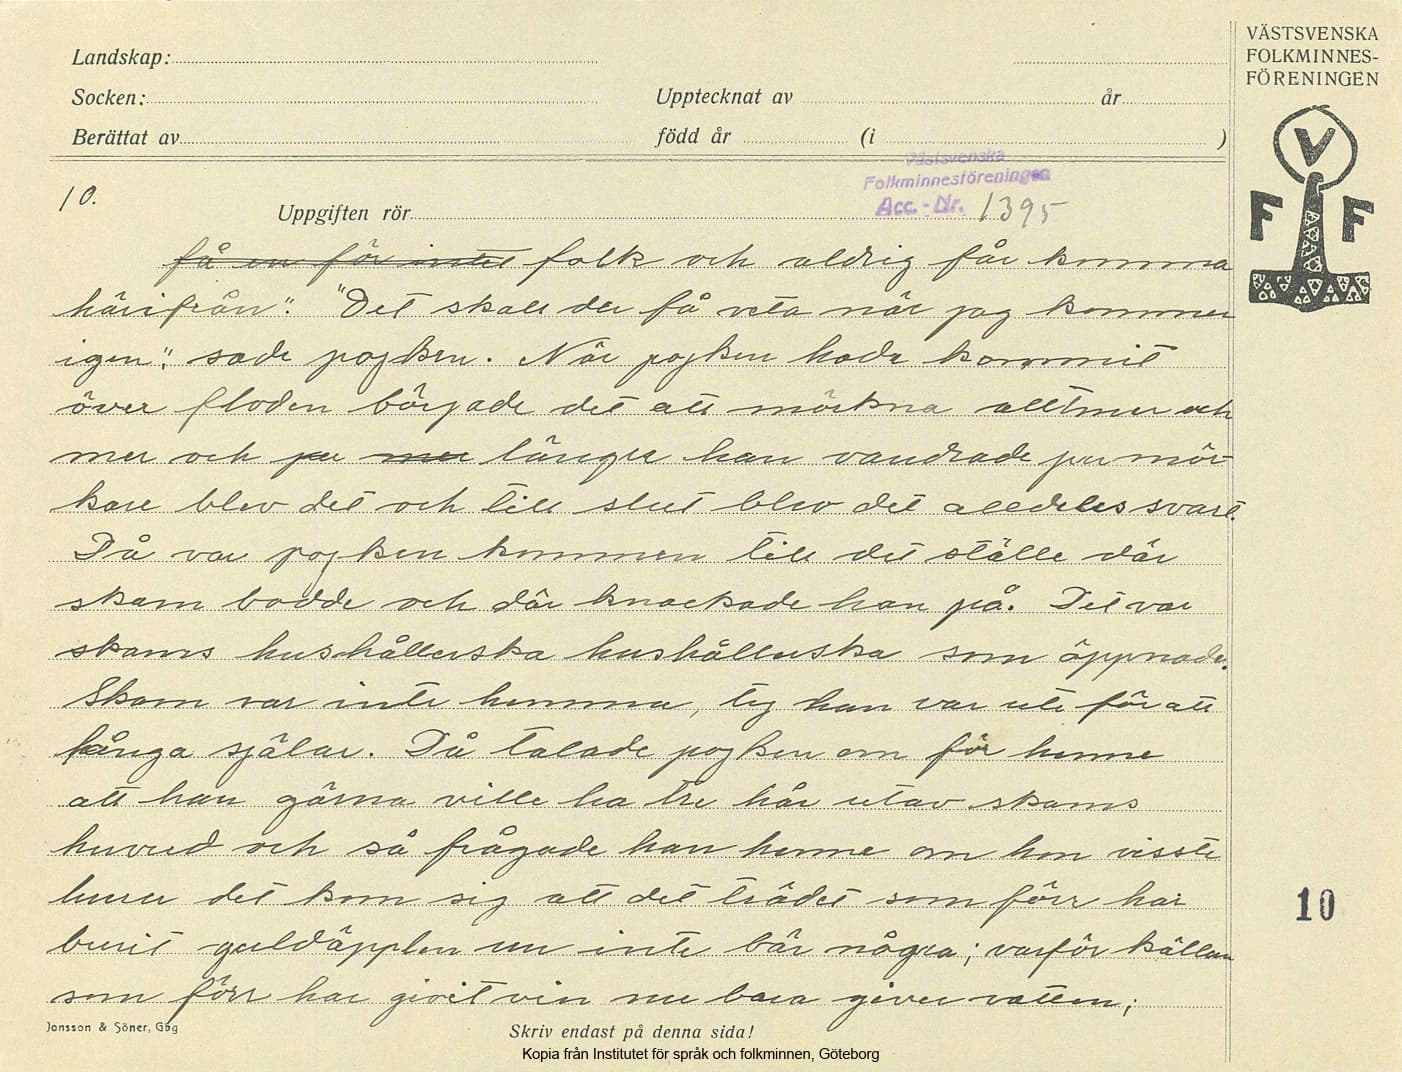 Landskap:
Socken:
Upptecknat av
år
Berättat av
född år
(i
)
VÄSTSVENSKA
FOLKMINNES-
FÖRENINGEN
V
F F
Västsvenska
Folkminnesföreningen
Acc.-Nr. 1395
10.
Uppgiften rör
få en för intet folk och aldrig får komma
härifrån". "Det skall du få veta när jag kommer
igen", sade pojken. När pojken hade kommit
över floden började det att mörkna alltmer och
mer och ju mer längre han vandrade ju mör-
kare blev det och till slut blev det alldeles svart.
Då var pojken kommen till det ställe där
skam bodde och där knackade han på. Det var
skams hushållerska hushållerska som öppnade.
Skam var inte hemma, ty han var ute för att
fånga själar. Då talade pojken om för henne
att han gärna ville ha tre hår utav skams
huvud och så frågade han henne om hon visste
huru det kom sig att det trädet som förr har
burit guldäpplen nu inte bär några; varför källan
som förr har givit vin nu bara giver vatten;
10
Jonsson & Söner, Gbg
Skriv endast på denna sida!
Kopia från Institutet för språk och folkminnen, Göteborg